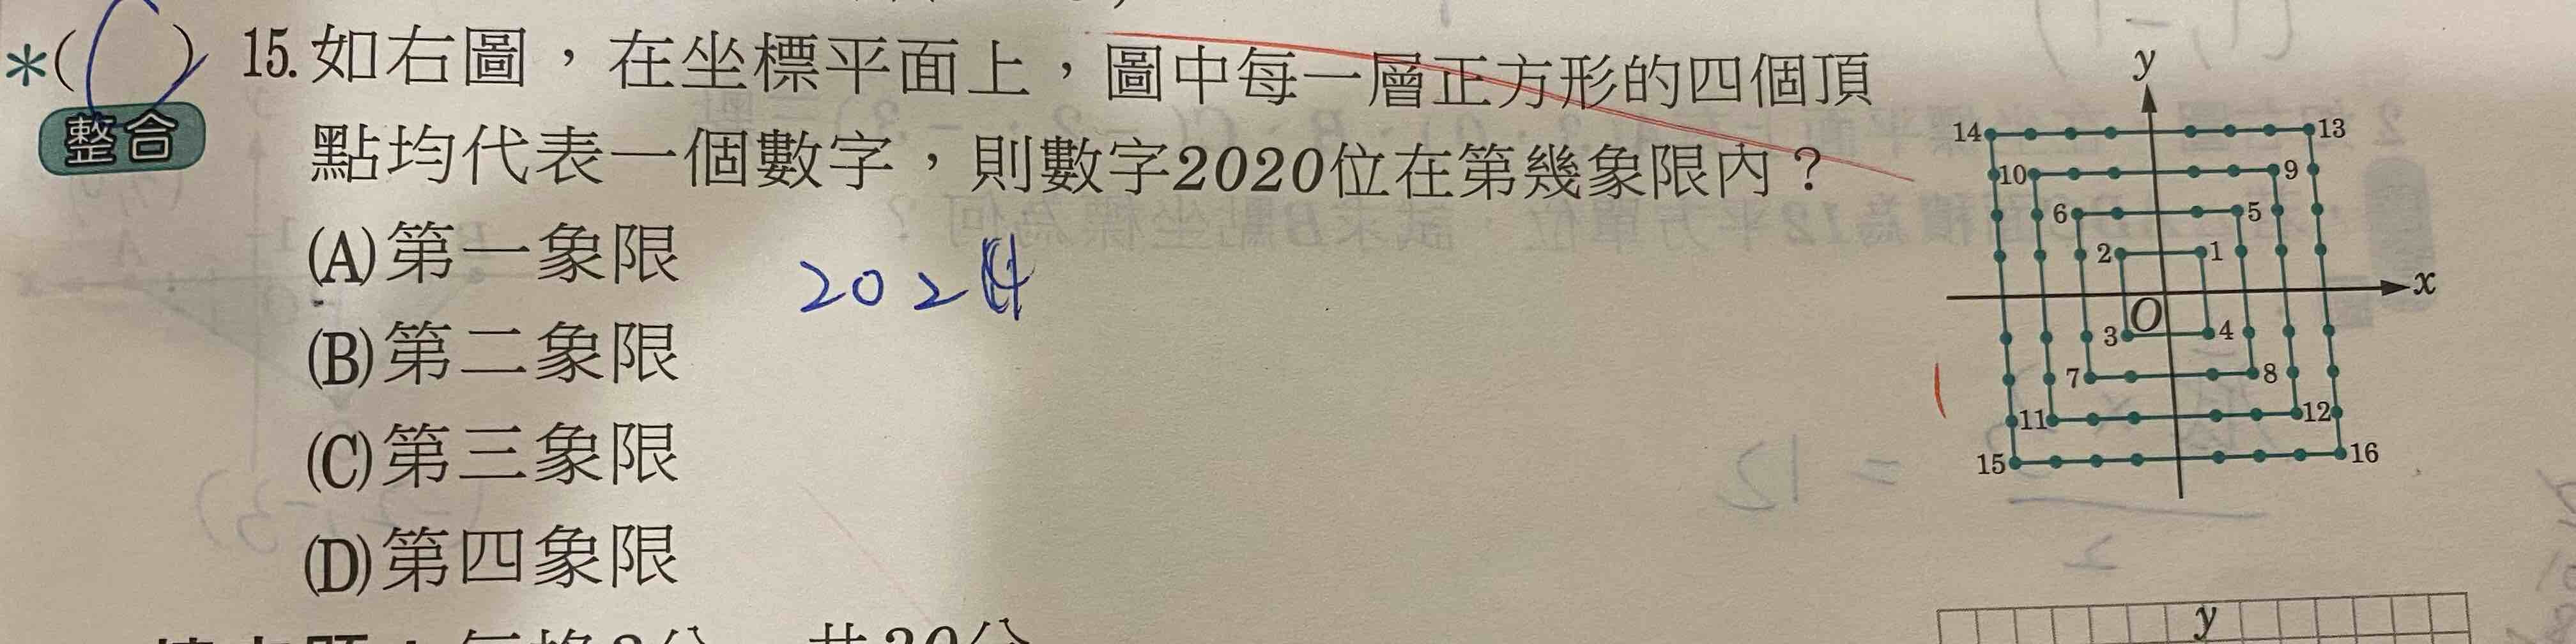 *( C ) 15.如右圖，在坐標平面上，圖中每一層正方形的四個頂
整合
點均代表一個數字，則數字2020位在第幾象限內？
(A)第一象限
(B)第二象限
(C)第三象限
(D)第四象限
202
y
14
13
10
9
6
5
2
1
x
O
3
4
7
8
11
12
15
16
= 12
2
y